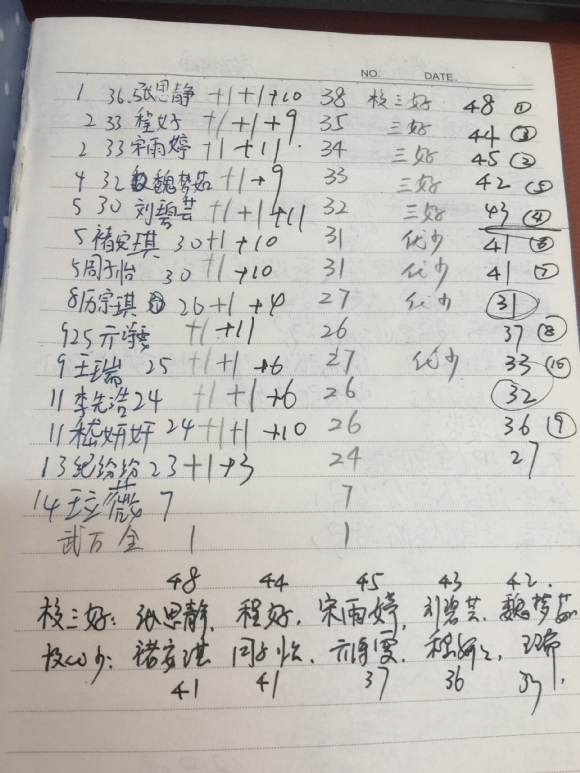 NO. DATE.
1 36 张思静 +1+1+10 38 校三好 48 ①
2 33 程好 +1+1+9 35 三好 44 ③
2 33 宋雨婷 +1+11 34 三好 45 ②
4 32 魏梦茹 +1+9 33 三好 42 ⑤
5 30 刘碧芸 +1+1+11 32 三好 43 ④
5 褚安琪 30+1+10 31 优少 41 ⑥
5 周子怡 30 +1+10 31 优少 41 ⑦
8 历宗琪 26+1+4 27 优少 31
9 25 亓 雯 +1+11 26 37 ⑧
9 王瑞 25 +1+1+6 27 优少 33 ⑩
11 李先浩 24 +1+1+6 26 32
11 嵇妍妍 24+1+1+10 26 36 ⑨
13 纪纷纷 23+1+3 24 27
14 王立薇 7 7
武万金 1 1
48 44 45 43 42.
校三好: 张思静, 程好, 宋雨婷, 刘碧芸, 魏梦茹
校心少: 褚安琪 周子怡, 亓 雯, 嵇妍妍, 王瑞,
41 41 37 36 33